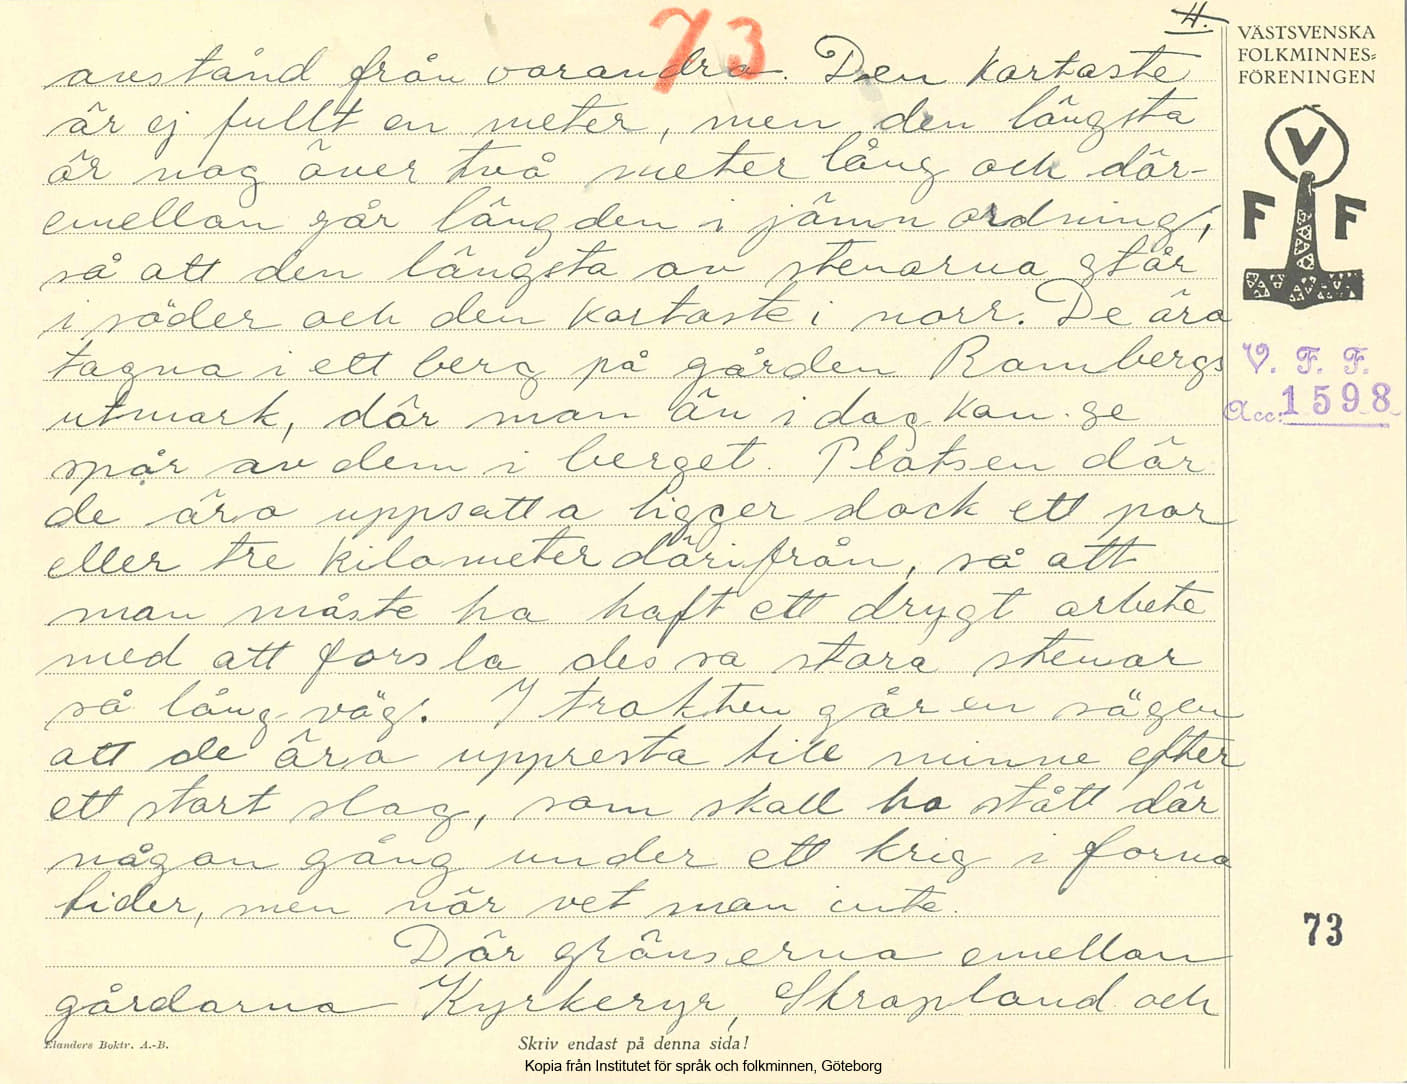 73
4.
VÄSTSVENSKA
FOLKMINNES=
FÖRENINGEN
V
F F
V. F. F.
Acc: 1598
73
avstånd från varandra. Den kortaste
är ej fullt en meter, men den längsta
är nog över två meter lång och där-
emellan går längden i jämn ordning,
så att den längsta av stenarna står
i söder och den kortaste i norr. De äro
tagna i ett berg på gården Rambergs
utmark, där man än i dag kan se
spår av dem i berget. Platsen där
de äro uppsatta ligger dock ett par
eller tre kilometer därifrån, så att
man måste ha haft ett drygt arbete
med att forsla dessa stora stenar
så lång väg. I trakten går en sägen
att de äro uppresta till minne efter
ett stort slag, som skall ha stått där
någon gång under ett krig i forna
tider, men när vet man inte.
Där gränserna emellan
gårdarna Kyrkeryr, Skrapland och
Elanders Boktr. A.-B.
Skriv endast på denna sida!
Kopia från Institutet för språk och folkminnen, Göteborg